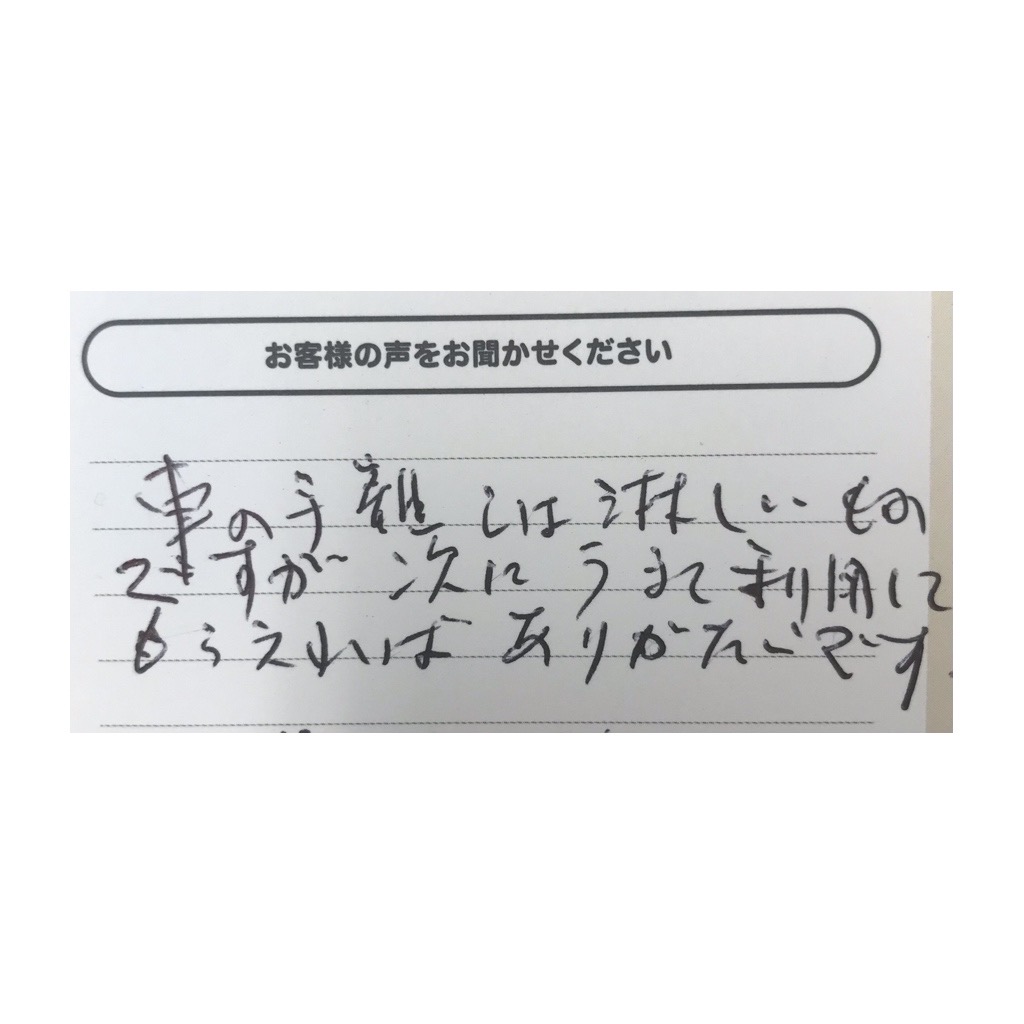 お客様の声をお聞かせください
車の手離しは淋しいもの
ですが次にうまく利用して
もらえればありがたいです